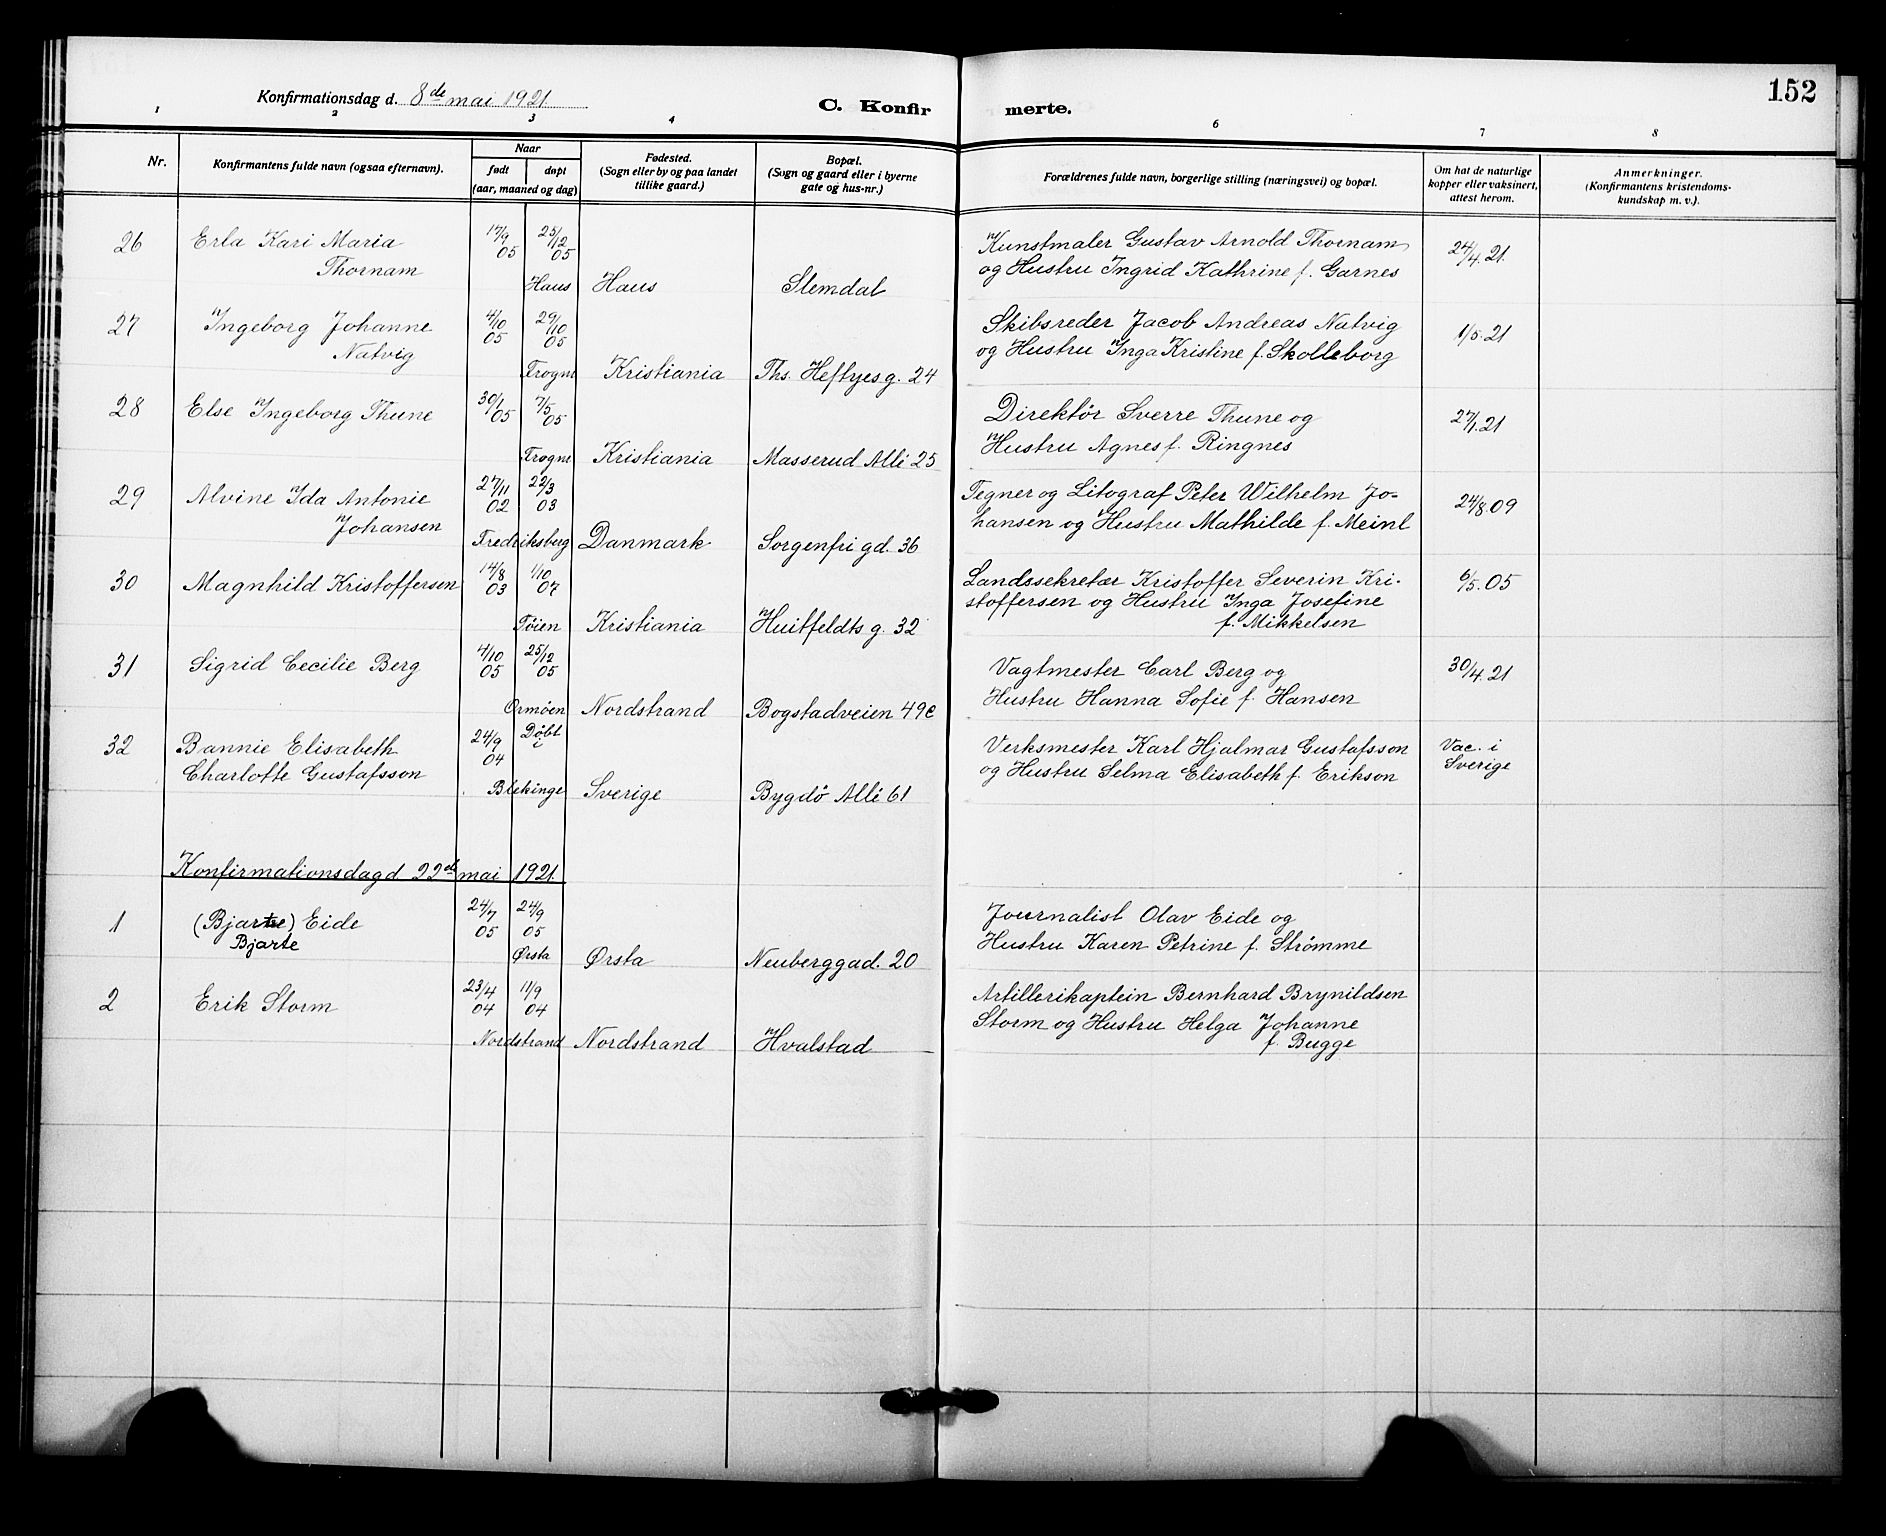 152
Konfirmationsdag d. 8de mai 1921.
C. Konfir merte.
1 2 3 4 6 7 8
Nr.
Konfirmantens fulde navn (ogsaa efternavn).
Naar
født døpt
(aar, maaned og dag)
Fødested.
(Sogn eller by og paa landet
tillike gaard.)
Bopæl.
(Sogn og gaard eller i byerne
gate og hus-nr.)
Forældrenes fulde navn, borgerlige stilling (næringsvei) og bopæl.
Om hat de naturlige
kopper eller vaksinert,
attest herom.
Anmerkninger.
(Konfirmantens kristendoms-
kundskap m. v.).
26 Erla Kari Maria 17/9 05 25/12 05 Kunstmaler Gustav Arnold Thornam 24/4.21.
Thornam Haus Haus Slemdal og Hustru Ingrid Kathrine f. Garnes
27 Ingeborg Johanne 4/10 05 29/10 05 Skibsreder Jacob Andreas Natvig 1/5.21
Natvig Frogne Kristiania Ths. Heftyes g. 24 og Hustru Inga Kristine f. Skolleborg
28 Else Ingeborg Thune 30/1 05 7/5 05 Direktör Sverre Thune og 27/1.21
Frogne Kristiania Masserud Allé 25 Hustru Agnes f. Ringnes
29 Alvine Ida Antonie 27/11 02 22/3 03 Tegner og Litograf Peter Wilhelm Jo- 24/8.09
Johansen Fredriksberg Danmark Sorgenfri gd. 36 hansen og Hustru Mathilde f. Meinl
30 Magnhild Kristoffersen 14/8 03 1/10 04 Landssekretær Kristoffer Severin Kri- 6/5.05
Tøien Kristiania Huitfeldts g. 32 stoffersen og Hustru Inga Josefine
f. Mikkelsen
31 Sigrid Cecilie Berg 4/10 05 25/12 05 Vagtmester Carl Berg og 30/4.21
Ormöen Nordstrand Bogstadveien 49c Hustru Hanna Sofie f. Hansen
32 Bannie Elisabeth 24/9 04 Döbt i Verksmester Karl Hjalmar Gustafsson Vac. i
Charlotte Gustafsson Blekinge Sverige Bygdö Allé 61 og Hustru Selma Elisabeth f. Erikson Sverige
Konfirmationsdag d 22de mai 1921.
1 (Bjarne) Eide 24/7 05 24/9 05 Journalist Olav Eide og
Bjarte Ørsta Ørsta Neuberggad. 20 Hustru Karen Petrine f. Strömme
2 Erik Storm 23/4 04 11/9 04 Artillerikaptein Bernhard Brynildsen
Nordstrand Nordstrand Hvalstad Storm og Hustru Helga Johanne
f. Bugge